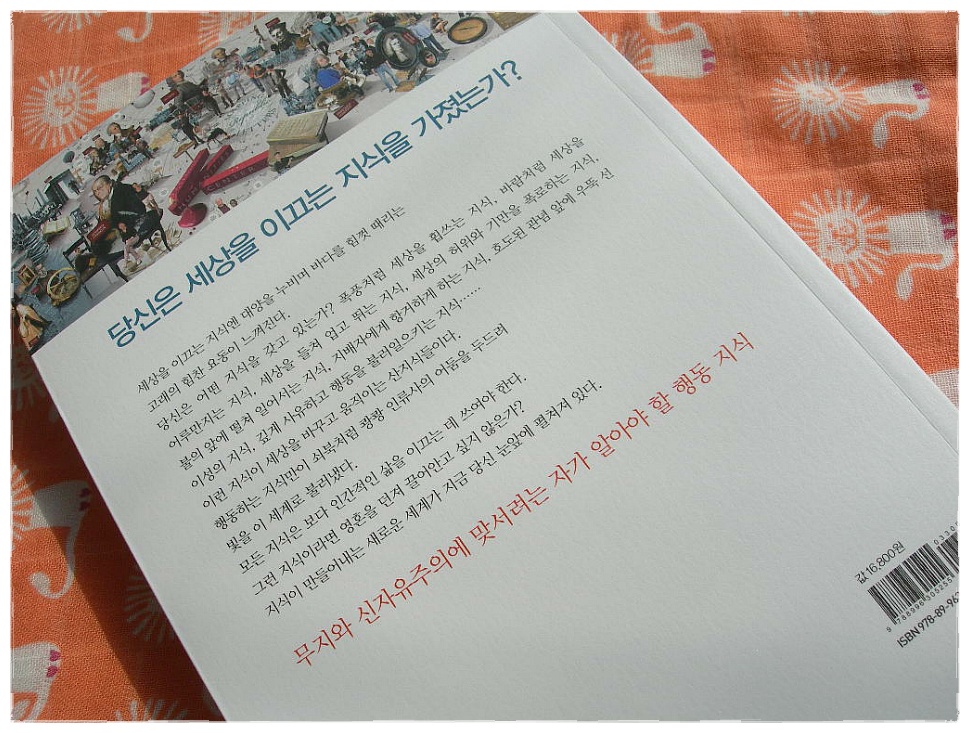 당신은 세상을 이끄는 지식을 가졌는가?
세상을 이끄는 지식엔 대양을 누비며 바다를 힘껏 때리는
고래의 힘찬 요동이 느껴진다.
당신은 어떤 지식을 갖고 있는가? 폭풍처럼 세상을 휩쓰는 지식, 바람처럼 세상을
어루만지는 지식, 세상을 들쳐 업고 뛰는 지식, 세상의 허위와 기만을 폭로하는 지식,
불의 앞에 떨쳐 일어서는 지식, 지배자에게 항거하게 하는 지식, 호도된 관념 앞에 우뚝 선
이성의 지식, 깊게 사유하고 행동을 불러일으키는 지식……
이런 지식이 세상을 바꾸고 움직이는 산지식들이다.
행동하는 지식만이 쇠북처럼 쾅쾅 인류사의 어둠을 두드려
빛을 이 세계로 불러냈다.
모든 지식은 보다 인간적인 삶을 이끄는 데 쓰여야 한다.
그런 지식이라면 영혼을 던져 끌어안고 싶지 않은가?
지식이 만들어내는 새로운 세계가 지금 당신 눈앞에 펼쳐져 있다.
무지와 신자유주의에 맞서려는 자가 알아야 할 행동 지식
값 16,800원
ISBN 978-89-96